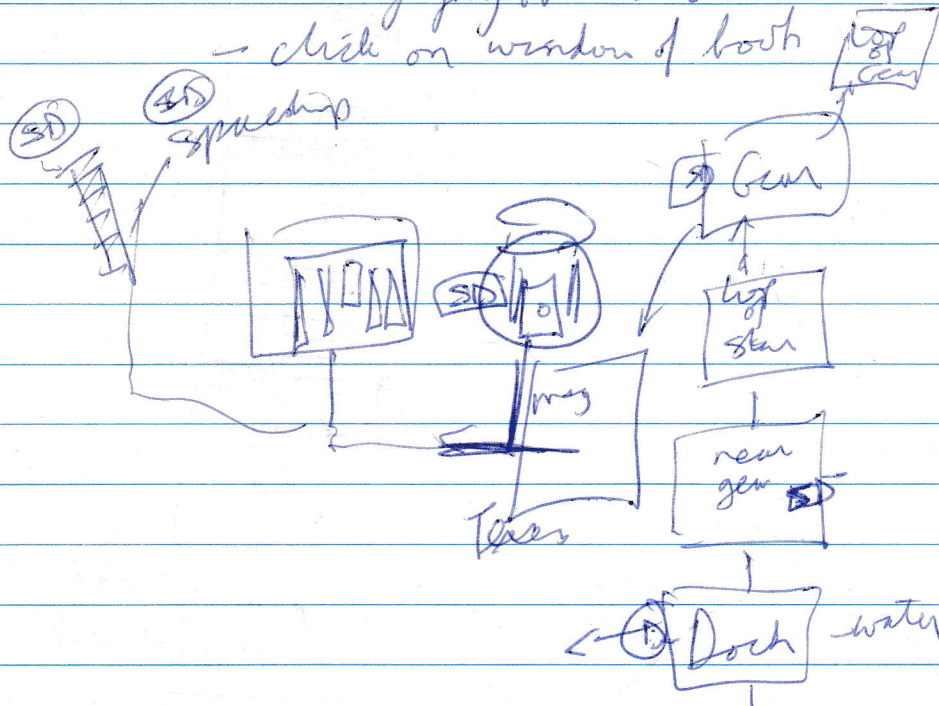 - click on window of book
top
of
Gear
SD
SD
spaceship
SD
Gear
SD
top
of
stair
near
gear
SD
Dock
water